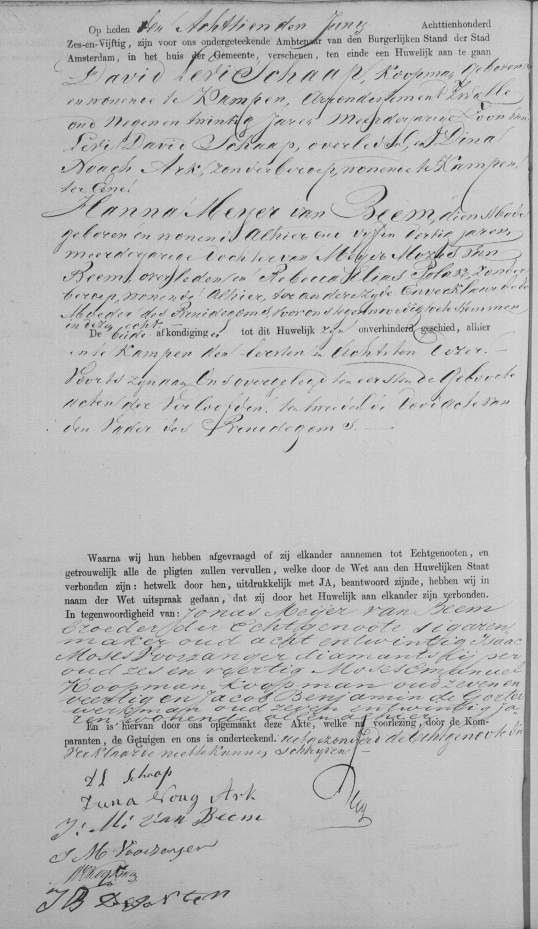 Op heden den Achttienden Juny Achttienhonderd
Zes-en-Vijftig, zijn voor ons ondergeteekende Ambtenaar van den Burgerlijken Stand der Stad
Amsterdam, in het huis der Gemeente, verschenen, ten einde een Huwelijk aan te gaan
David Levi Schaap, Koopman, Geboren
en wonende te Kampen, Arrondissement Zwolle
oud Negen en twintig Jaren Meerderjarige Zoon van
Levi David Schaap, overleden, en Dina
Noach Ark, zonder beroep, wonende te Kampen,
ter Eene
Hanna Meyer van Beem, dienstbode
geboren en wonende alhier oud vyf en dertig jaren,
meerderjarige Dochter van Meyer Mozes van
Beem, overleden en Rebecca Elias Polak, zonder
beroep, wonende Alhier, ter andere zyde. En verklaarde de
Moeder des Bruidegoms voor ons tegenwoordig toe te stemmen
in deze echt.
De beide afkondigingen tot dit Huwelijk zijn onverhinderd geschied, alhier
en te Kampen den Eersten en Achtsten dezer.
Voorts zyn aan Ons overgelegd ten eersten de Geboorte
acten der Verloofden, ten tweede de Doodacte van
den Vader des Bruidegoms.
Waarna wij hun hebben afgevraagd of zij elkander aannemen tot Echtgenooten, en
getrouwelijk alle de pligten zullen vervullen, welke door de Wet aan den Huwelijken Staat
verbonden zijn: hetwelk door hen, uitdrukkelijk met JA, beantwoord zijnde, hebben wij in
naam der Wet uitspraak gedaan, dat zij door het Huwelijk aan elkander zijn verbonden.
In tegenwoordigheid van: Jonas Meijer van Beem
broeder der Echtgenoote sigaren
maker oud acht en twintig Isaac
Moses Voorzanger diamantslijper
oud zes en veertig Moses Emanuel
Koopman, Koopman oud zeven en
veertig en Jacob Benjamin de Gorter
werkman oud zeven en twintig ja
ren, wonende allen alhier
En is hiervan door ons opgemaakt deze Akte, welke na voorlezing door de Kom-
paranten, de Getuigen en ons is onderteekend. uitgezonderd de Echtgenoote die
verklaarde niet te kunnen schryven
D L Schaap
Duna Noug Ark
J. M. van Beem
J M Voorzanger
J B De Gorter